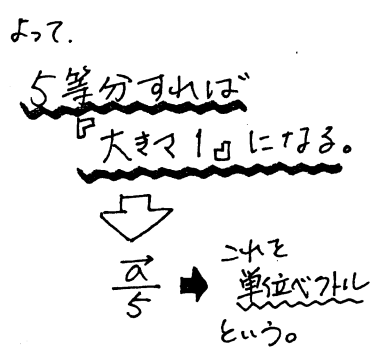 よって.
5等分すれば
『大きさ1』になる。
⇩
a⃗/5 ➡ これを
単位ベクトル
という。